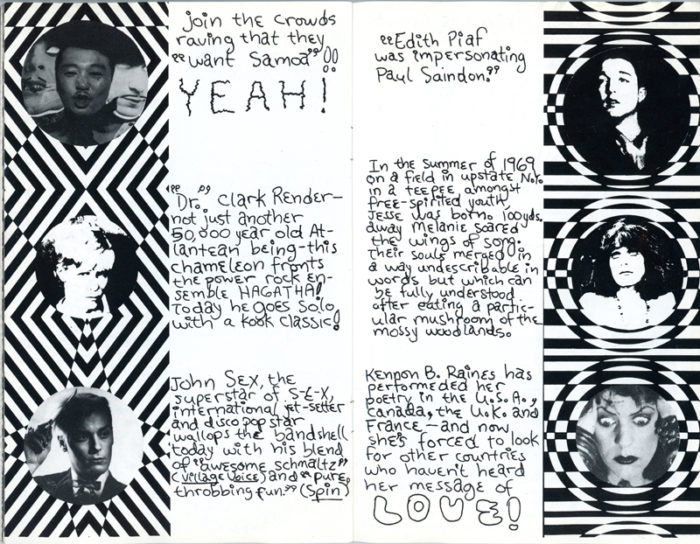 join the crowds
raving that they
"want Samoa"!!
YEAH!
"Dr." Clark Render-
not just another
50,000 year old At-
lantean being-this
chameleon fronts
the power rock en-
semble HAGATHA!
Today he goes solo
with a kook classic!
John Sex, the
superstar of S-E-X,
international jet-setter
and disco pop star
wallops the bandshell
today with his blend
of "awesome schmaltz"
(Village Voice) and "pure,
throbbing fun." (Spin)
"Edith Piaf
was impersonating
Paul Saindon."
In the summer of 1969
on a field in upstate N.Y.
in a teepee amongst
free-spirited youth,
Jesse was born. 100yds.
away Melanie soared
the wings of song.
Their souls merged in
a way undescribable in
words but which can
be fully understood
after eating a partic-
ular mushroom of the
mossy woodlands.
Kennon B. Raines has
performeded her
poetry in the U.S.A.,
Canada, the U.K. and
France-and now
she's forced to look
for other countries
who haven't heard
her message of
LOVE!